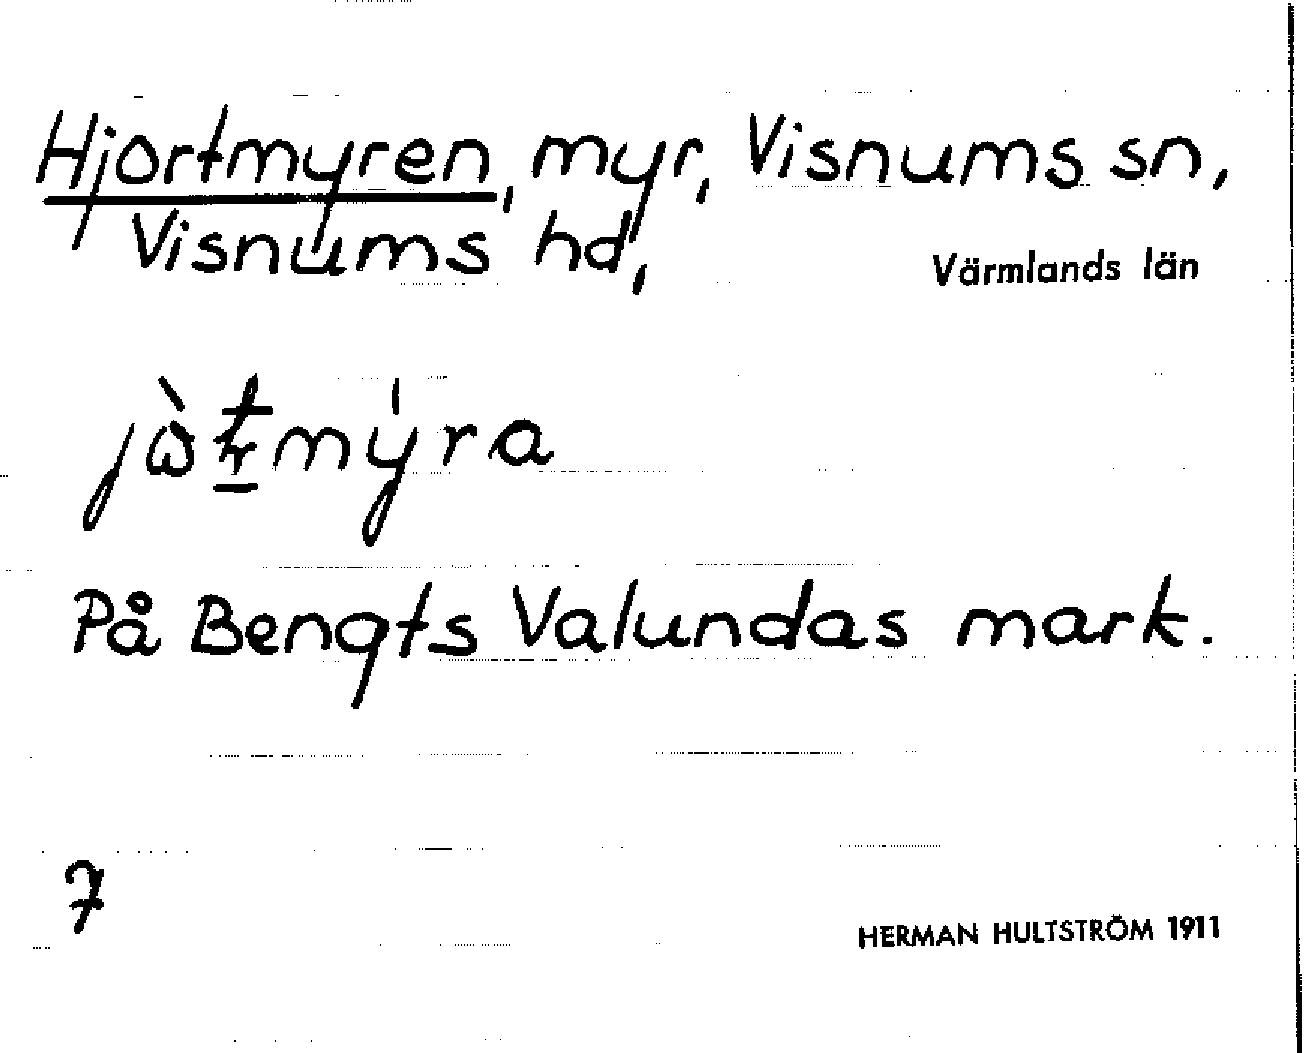 Hjortmyren, myr, Visnums sn,
Visnums hd,
Värmlands län
jὼṯmýra
På Bengts Valundas mark.
7
HERMAN HULTSTRÖM 1911